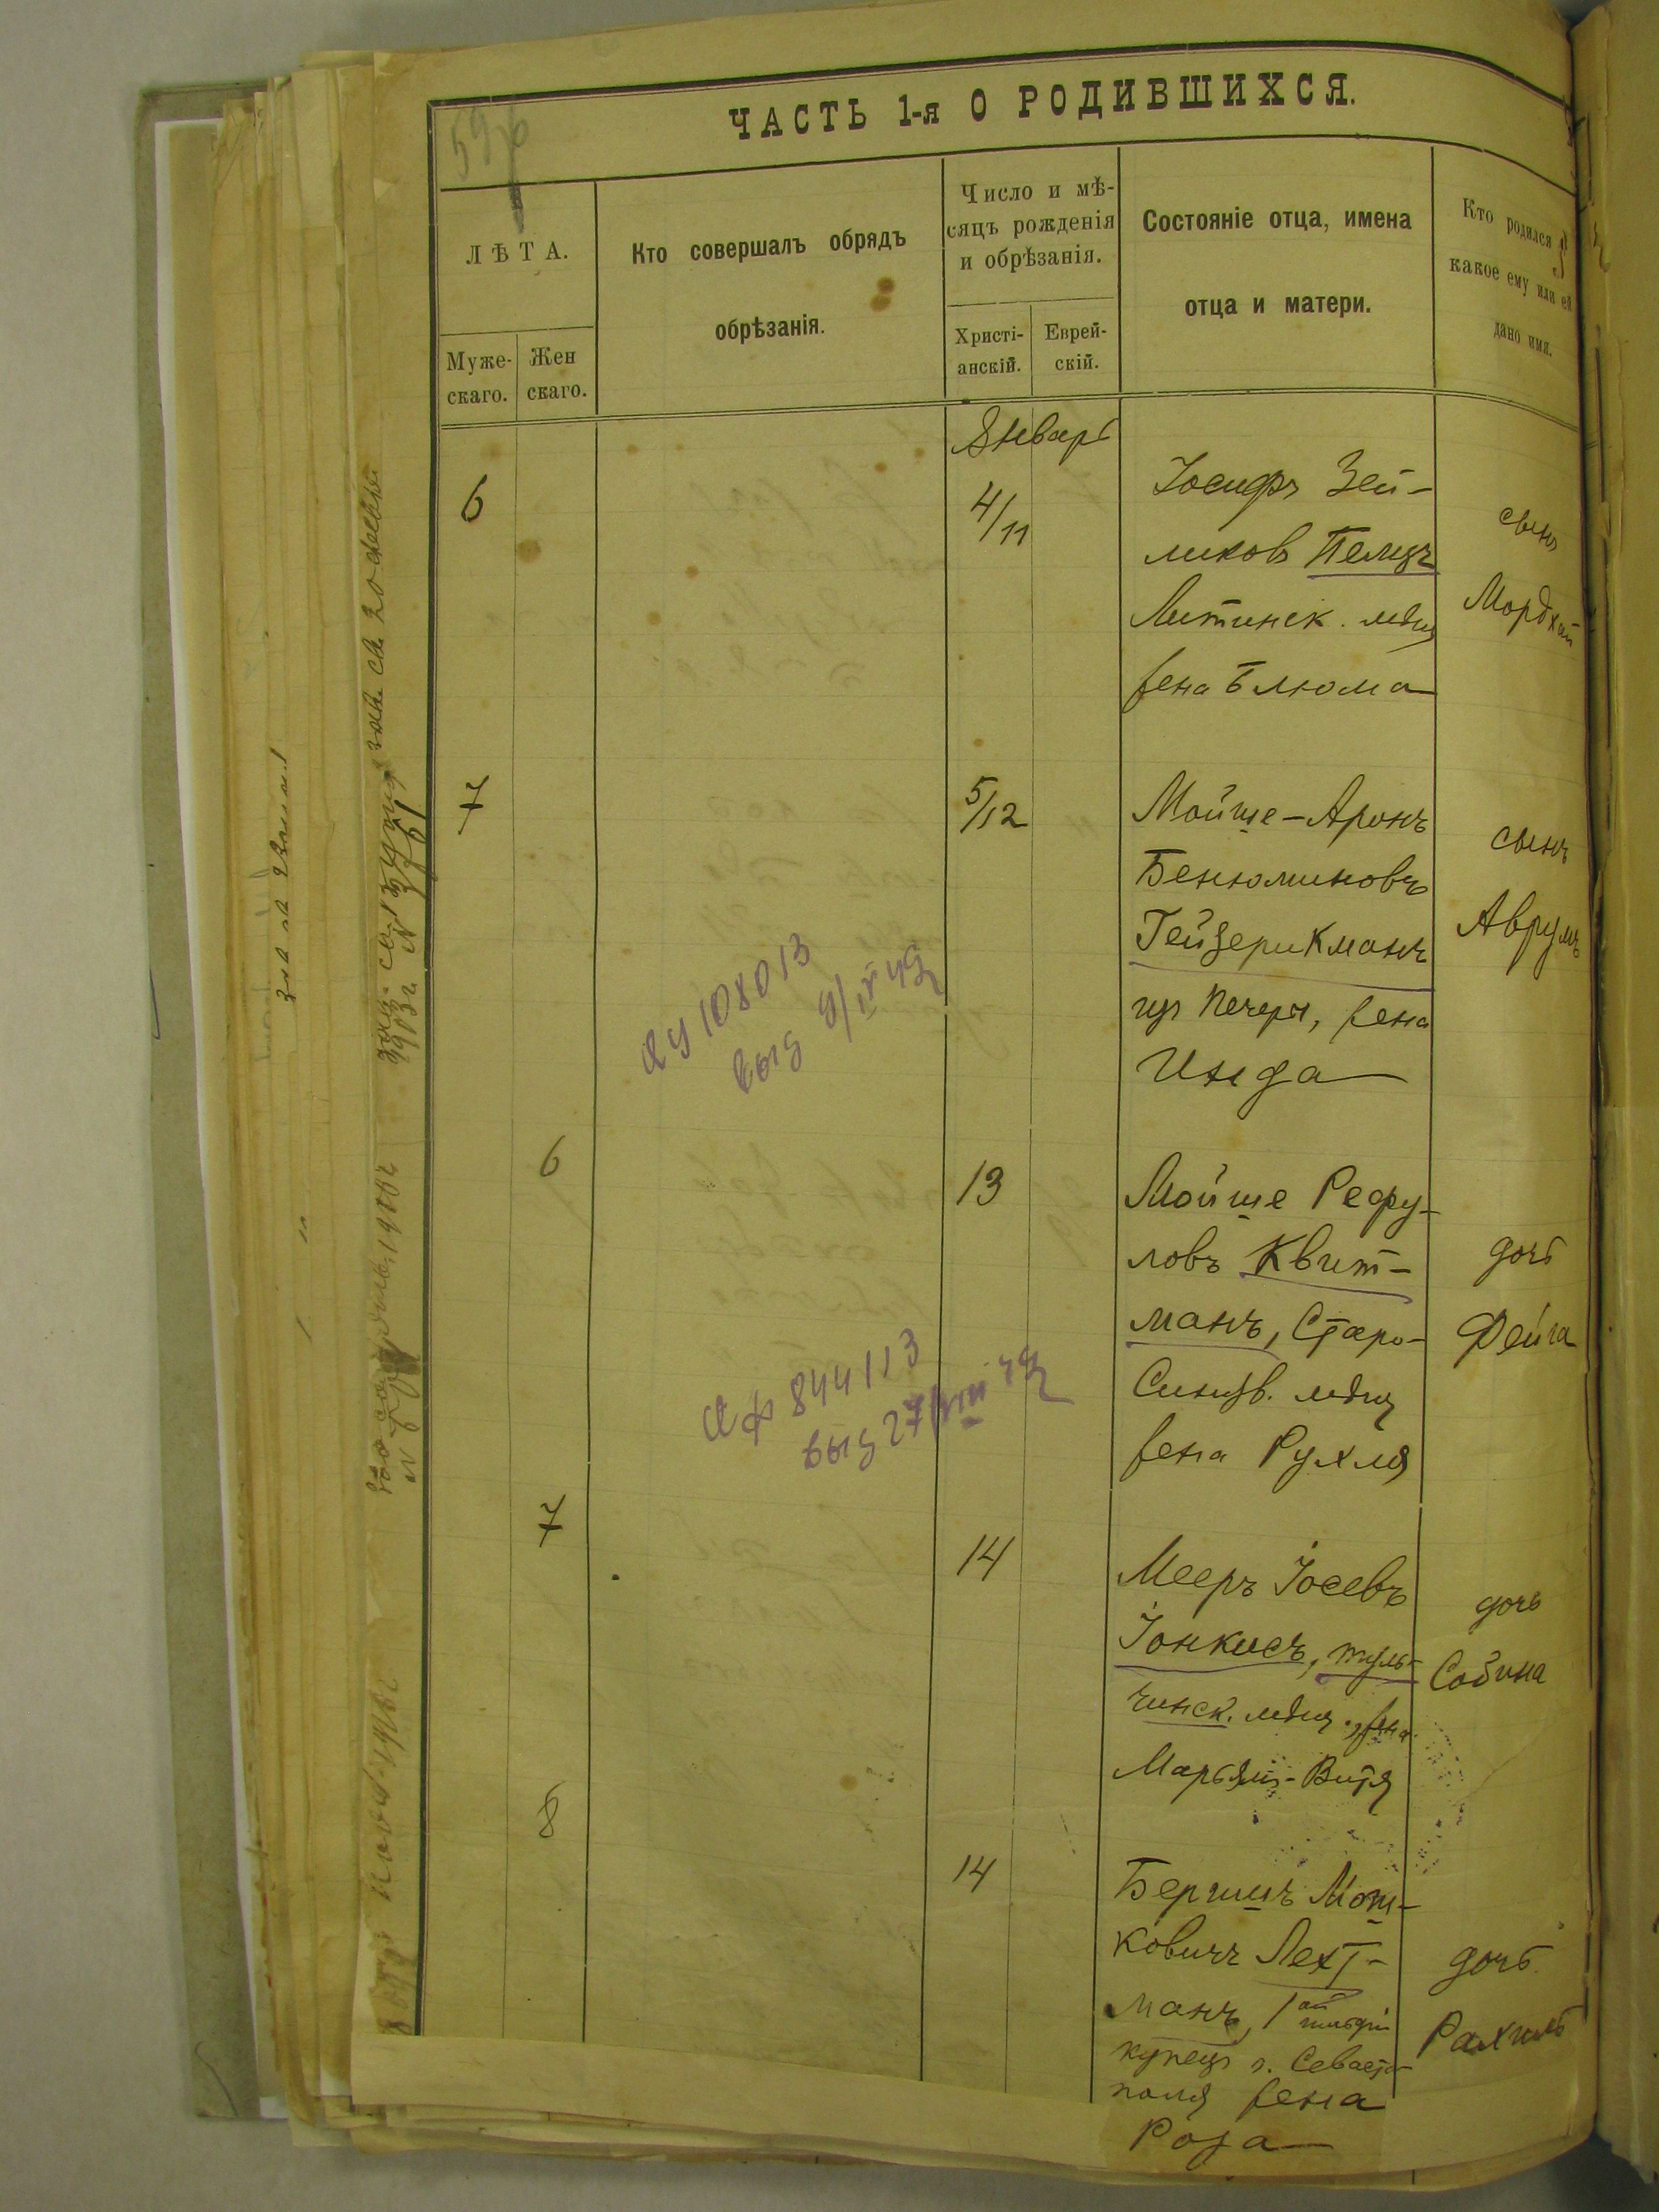 ЧАСТЬ 1-я О РОДИВШИХСЯ.
ЛѢТА.
Муже-
скаго.
Жен
скаго.
Кто совершалъ обрядъ
обрѣзанія.
Число и мѣ-
сяцъ рожденія
и обрѣзанія.
Христі-
анскій.
Еврей-
скій.
Состояніе отца, имена
отца и матери.
Кто родился
какое ему или ей
дано имя.
Январь
6
4/11
Іосифъ Зей-
ликовъ Пельцъ
Литинск. мѣщ
жена Блюма
сынъ
Мордхай
7
5/12
Мойше-Аронъ
Бенюминовъ
Гейзерикманъ
изъ Печеры, жена
Инда
сынъ
Аврумъ
108013
6
13
Мойше Рефу-
ловъ Квит-
манъ, Старо-
Синяв. мѣщ
жена Рухля
дочь
Фейга
844113
выд 27/VIII
7
14
Мееръ Іосевъ
Іонкисъ, туль-
чинск. мѣщ., жена
Марьям-Витя
дочь
Собина
8
14
Бергишъ Мош-
ковичъ Лехт-
манъ, 1ой гильдіи
купецъ г. Севасто-
поля жена
Роза
дочь
Рахиль